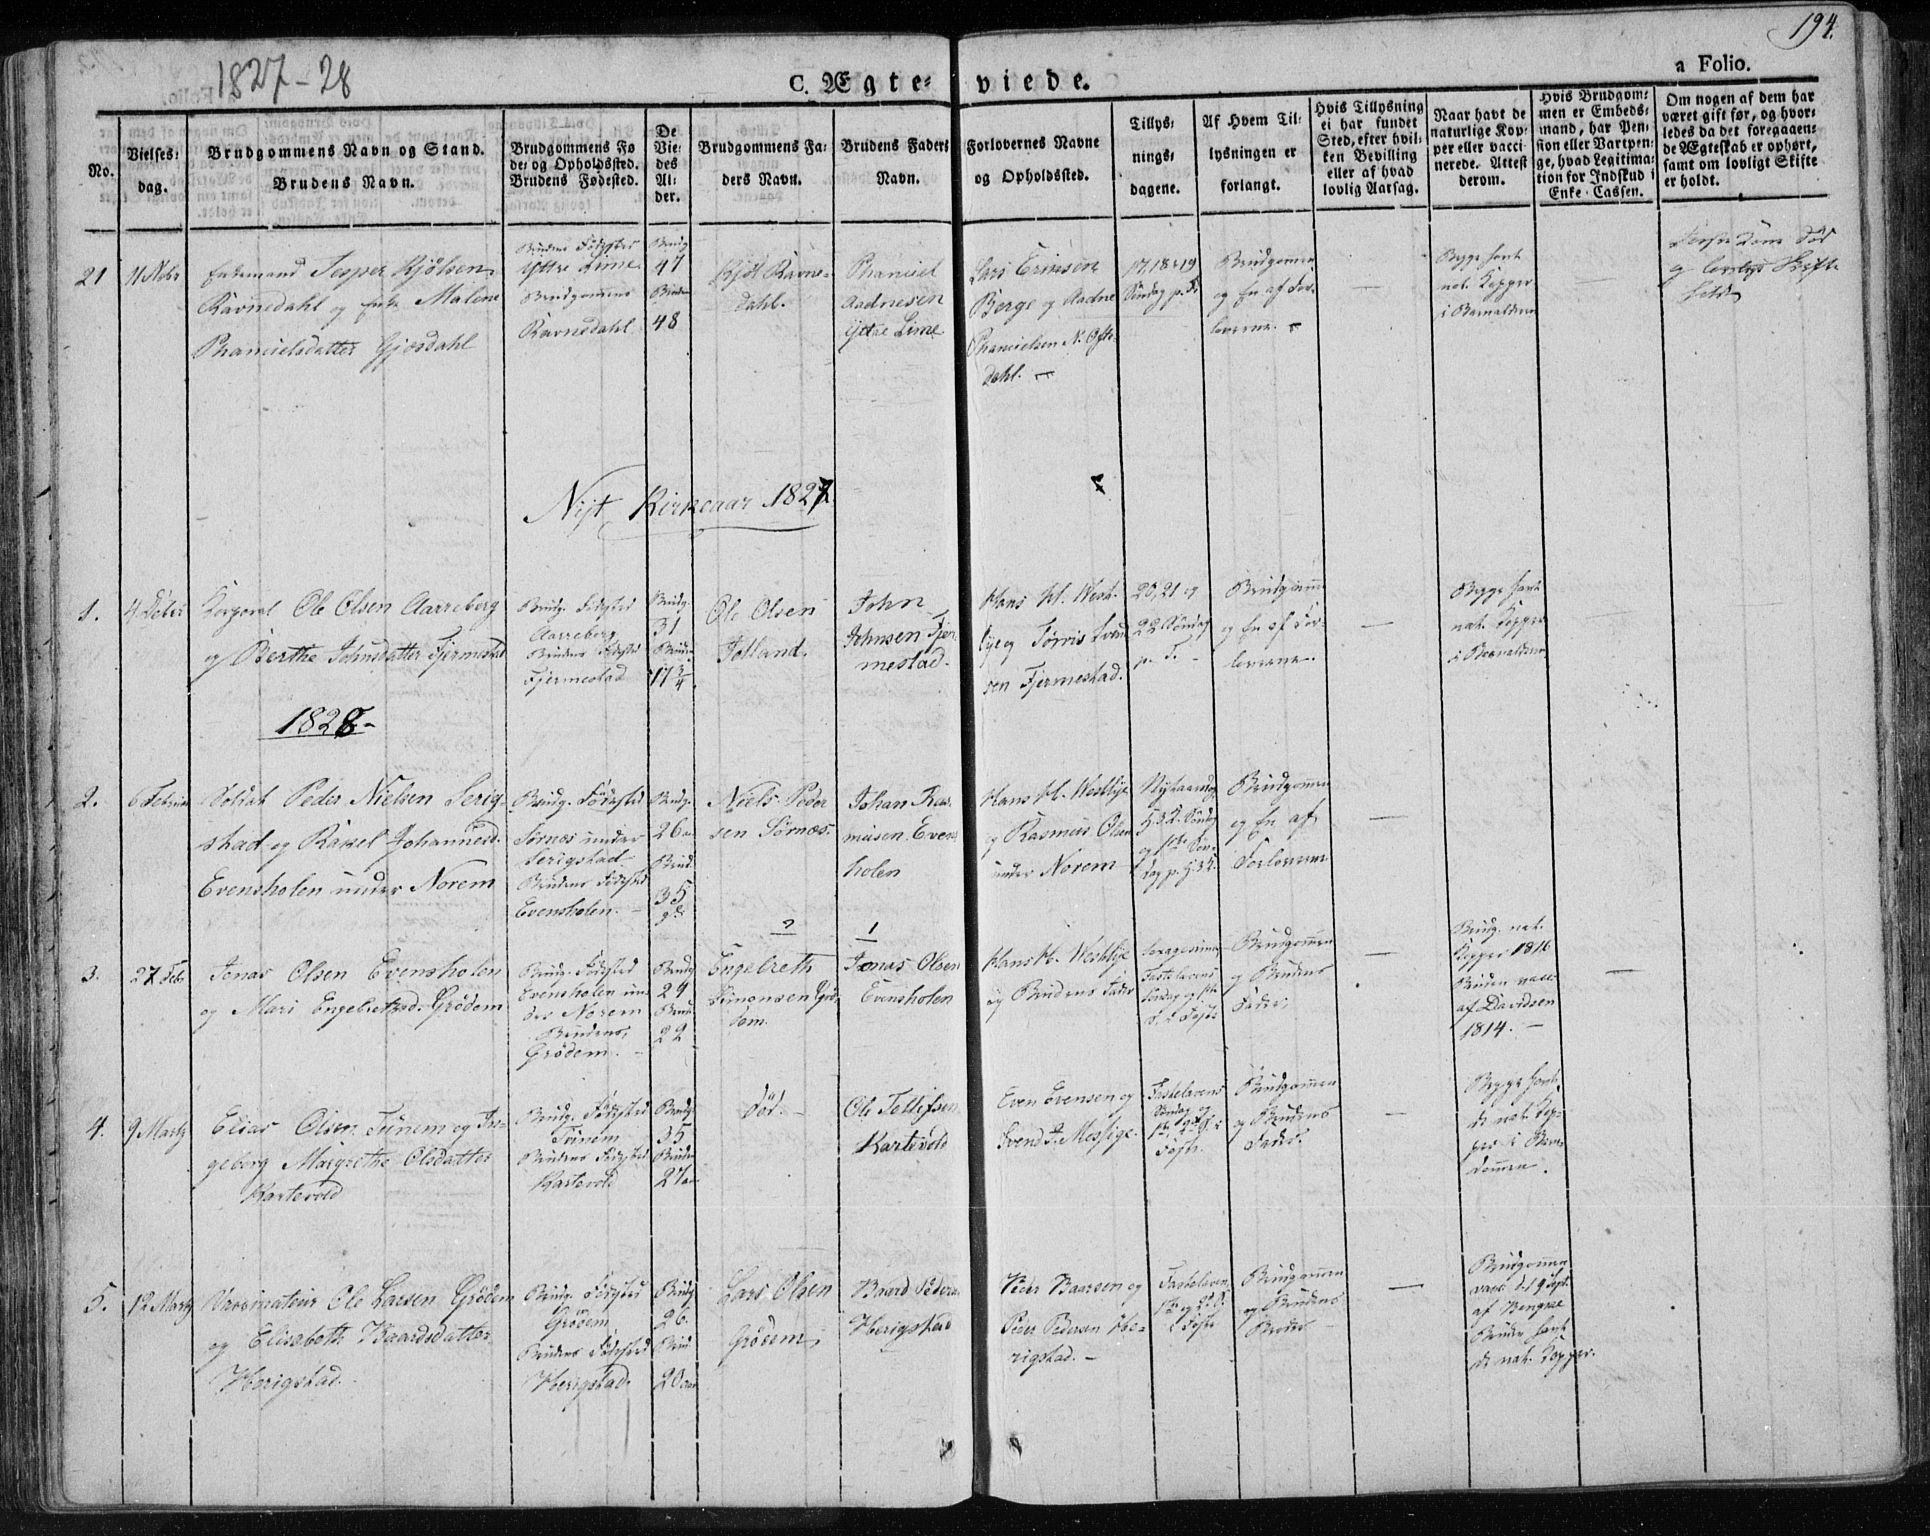 194.
1827-28
C. Ægte-viede.
a Folio.
No.
Vielses-
dag.
Brudgommens Navn og Stand.
Brudens Navn.
Brudgommens Fø
de- og Opholdssted.
Brudens Fødested.
De
Vie-
des
Al-
der.
Brudgommens Fa-
ders Navn.
Brudens Faders
Navn.
Forlovernes Navne
og Opholdssted.
Tillys-
nings-
dagene.
Af Hvem Til-
lysningen er
forlangt.
Hvis Tillysning
ei har fundet
Sted, efter hvil-
ken Bevilling
eller af hvad
lovlig Aarsag.
Naar havt de
naturlige Kop-
per eller vacci-
nerede. Attest
derom.
Hvis Brudgom-
men er Embeds-
mand, har Pen-
sion eller Vartpen-
ge, hvad Legitima-
tion for Indskud i
Enke-Cassen.
Om nogen af dem har
været gift før, og hvor-
ledes da det foregaaen-
de Ægteskab er ophørt,
samt om lovligt Skifte
er holdt.
21
Enkemand Jesper Kjölsen
Ravnedahl og Enke Malene
Phanuelsdatter Gjosdahl
Brudens Födested
Yttre Lime
Brudgommens
Ravnedahl
Brudg
47
Bruden
48
Kjöl Ravne-
dahl.
Phanuel
Aadnesen
Yttre Lime
Lars Erinsen
Berge og Aadne
Phanuelsen N. Ofte-
dahl.
17, 18 & 19
Söndag p. T.
Brudgommen
og En af For-
loverne.
Begge havt
nat. Kopper
i Barnaldren
Nyt Kirkeaar 1827
1.
4 Decbr
Korporal Ole Olsen Aarreberg
og Berthe Johnsdatter Fjermestad
Brudg. Födested
Aarreberg
Brudens Födested
Fjermestad
Brudg.
31
Bruden
17 3/4
Ole Olsen
Tolland.
John
Johnsen Fjer-
mestad.
Hans H. West-
lye og Törris Svend-
sen Fjermestad.
20, 21 og
22 Söndag
p. T.
Brudgommen
og En af For-
loverne.
Begge havt
nat. Kopper
i Barnaldren
1828
2.
6 Februar
Soldat Peder Nielsen Serig-
stad og Rakel Johannesd.
Evensholen under Norem
Brudg. Födested
Sörnes under
Serigstad
Brudens Födested
Evensholen.
Brudg.
26
Brud.
35
Niels Peder
sen Sörnæs.
Johan Ras-
musen Evens
holen
Hans H. Westlye
og Rasmus Olsen
under Norem
Brudgommen
og En af
Forloverne
3.
27 Feb
Jonas Olsen Evensholen
og Mari Engelretsd. Grödem
Brudg. Födested
Evensholen un-
der Norem
Brudens,
Grödem.
Brudg
29
Brud
22
2
Engelreth
Simonsen Grö-
dem.
1
Jonas Olsen
Evensholen
Hans H. Westlye
og Brudens Fader
Fastelavens
Söndag og 1ste
S. i Faste
Brudgommen
og Brudens
Fader.
Brudg. nat.
Kopper 1816
Bruden vacc.
af Davidsen
1814.
4.
9 Marts
Elias Olsen Tunem og In-
geborg Margrethe Olsdatter
Kartevold
Brudg. Födested
Tunem
Brudens Födested
Kartevold
Brudg.
35
Bruden
27
död.
Ole Tollefsen
Kartevold
Even Evensen og
Svend J. Messige.
Fastelavens
Söndag og
1ste og 2d S. i
Faste.
Brudgommen
og Brudens
Fader.
Begge havt
de nat. Kop-
per i Barn-
dommen.
5.
12 Marts
Vaccinateur Ole Larsen Grödem
og Elisabeth Baardsdatter
Herigstad.
Brudg. Födested
Grödem
Brudens Födested
Herigstad.
Brudg
26.
Brud
20
Lars Olsen
Grödem
Baard Peders
Herigstad
Peder Baarsen og
Peder Pedersen He-
rigstad.
Fastelaven,
1ste og 2d S.
i Faste
Brudgommen
og Brudens
Broder
Brudgommen
vacc. d. 19 Spt.
af Bengaae
Bruden havt
de nat. Kopper.